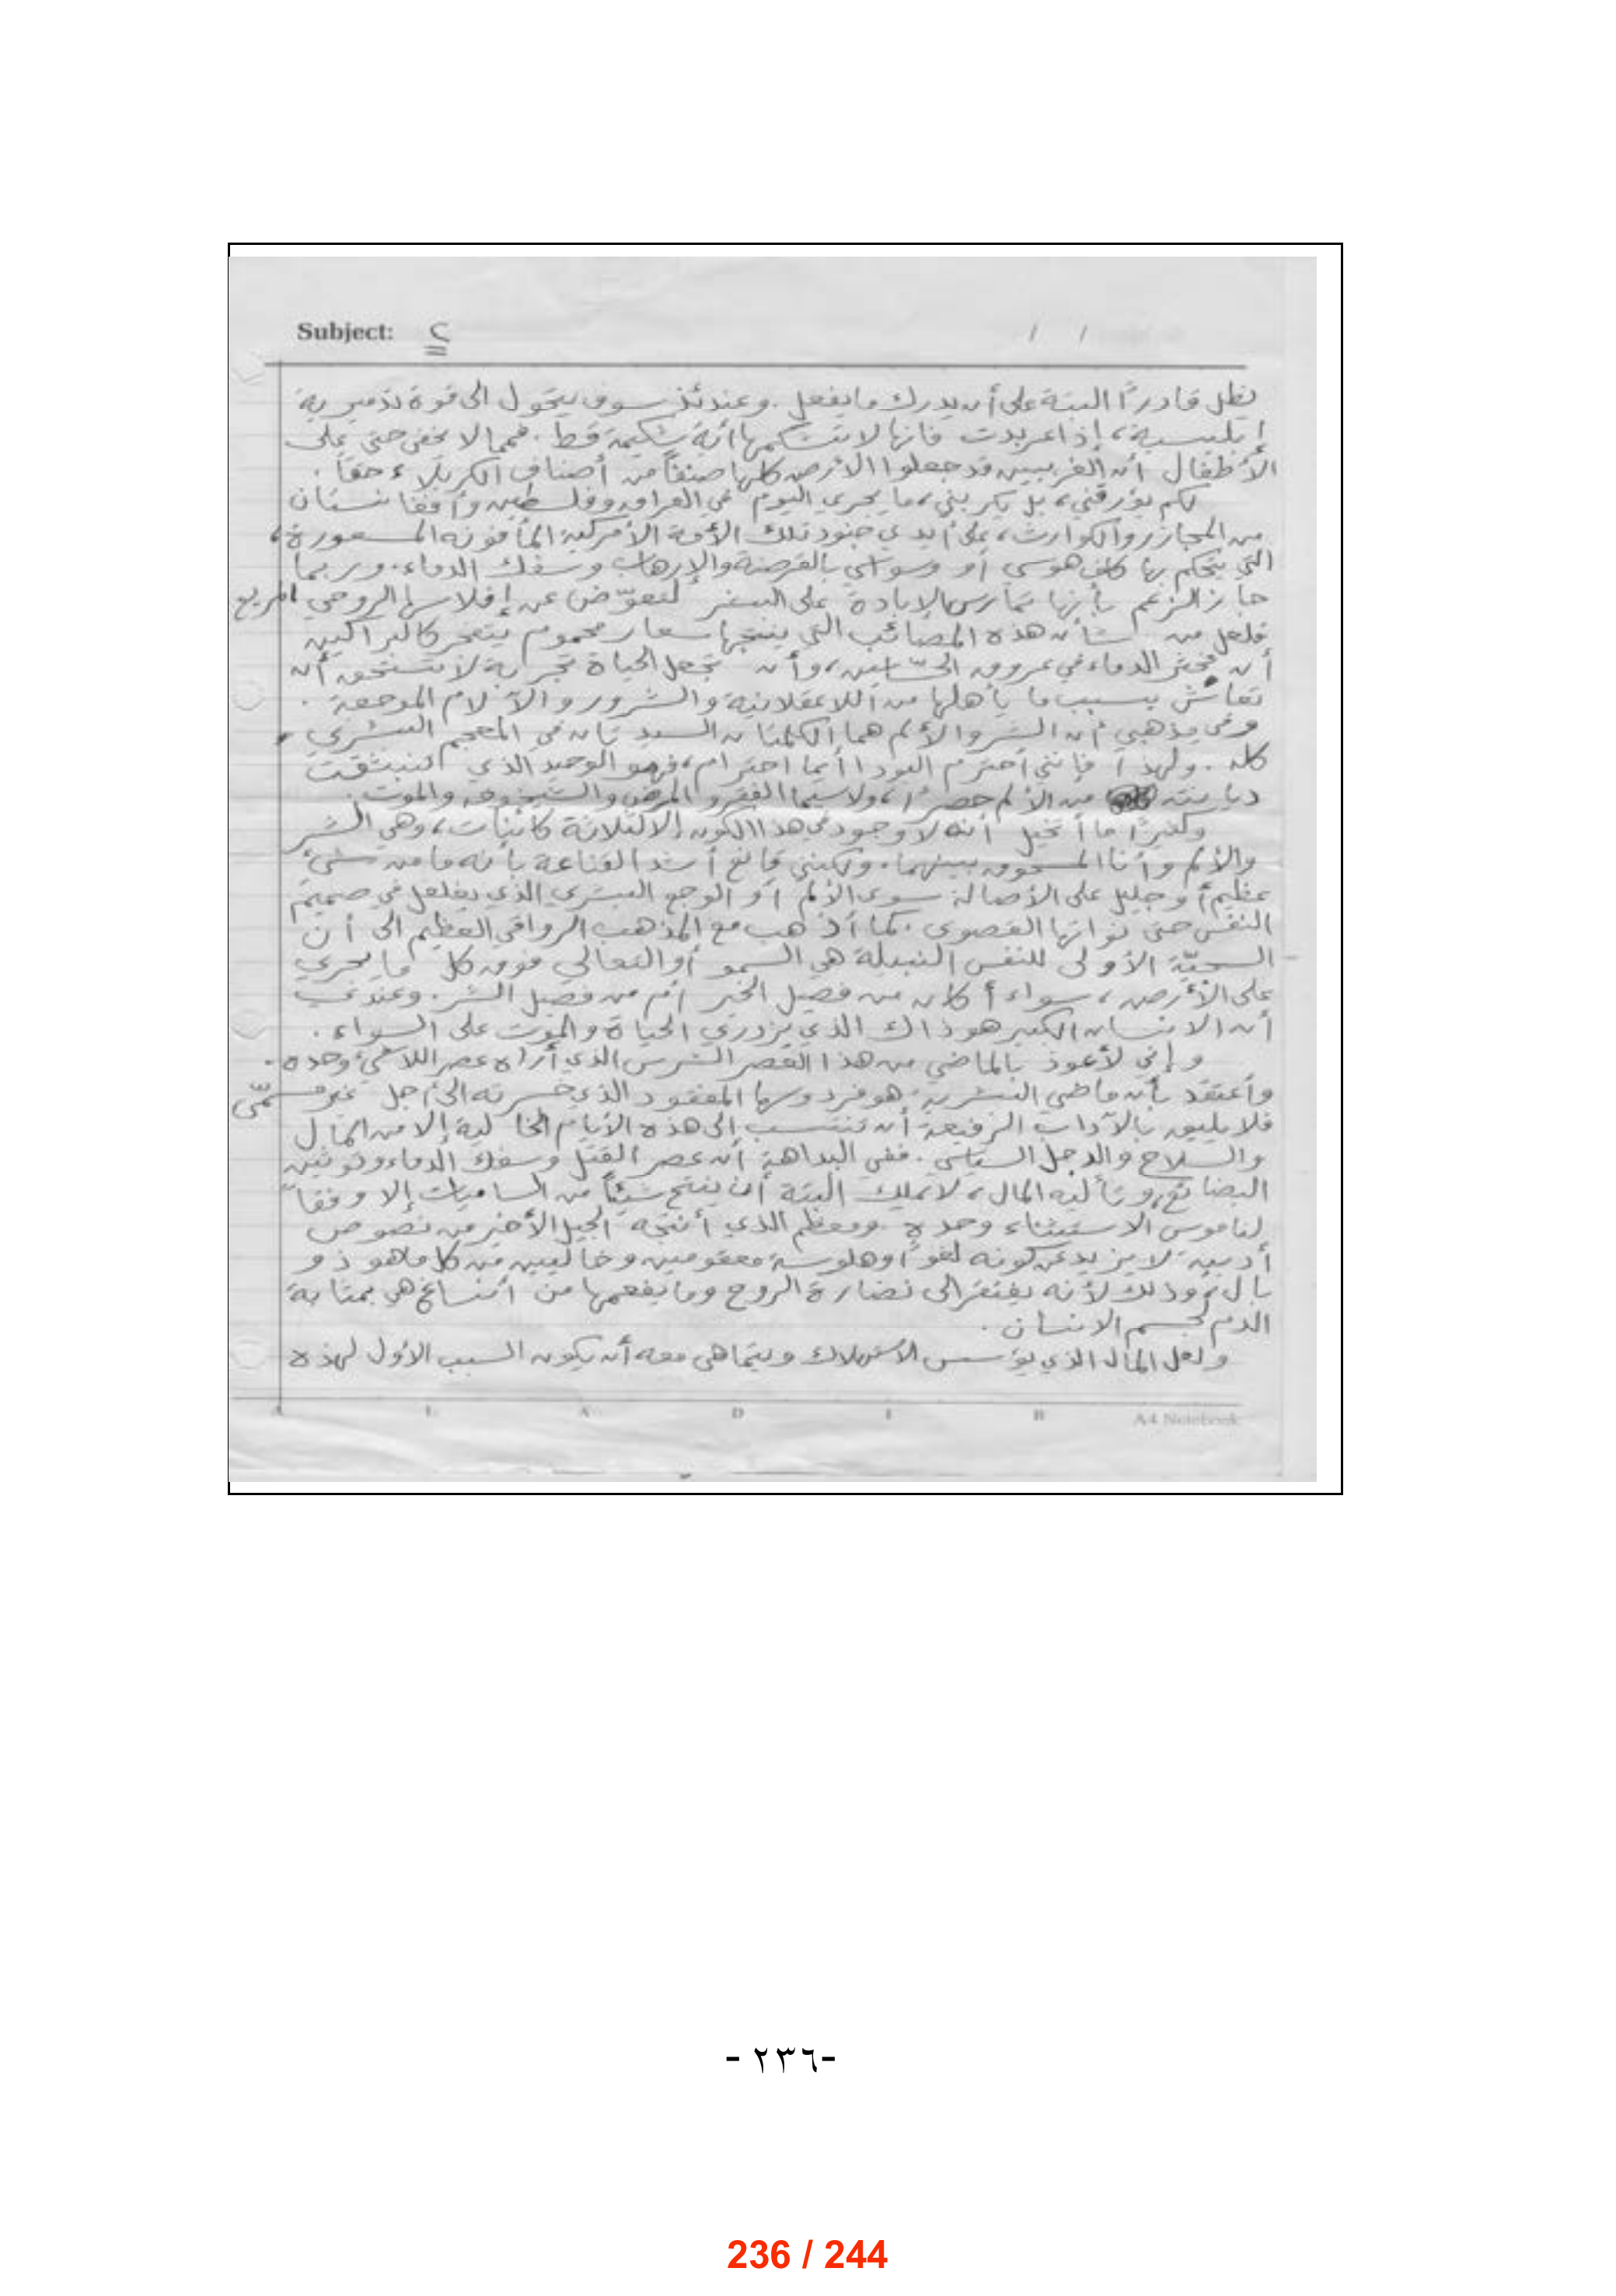 Subject: ٢
/ /
يظل قادراً البتة على أن يدرك ما يفعل. وعندئذ سوف يتحول الى قوة تدميرية
إبليسية، إذا عربدت فانها لا تشكمها أية شكيمة قط. فمما لا يخفى حتى على
الأطفال أن الغربيين قد جعلوا الأرض كلها صنفاً من أصناف الكربلاء حقاً.
لكم يؤرقني، بل يكربني، ما يجري اليوم في العراق وفلسطين وأفغانستان
من المجازر والكوارث، على أيدي جنود تلك الأمة الأمركية المأفونة المسعورة،
التي يتحكم بها هوسي أو وسواسي بالقرصنة والإرهاب وسفك الدماء. وربما
جاز الزعم بأنها تمارس الإبادة على البشر لتعوّض عن إفلاسها الروحي المريع
فلعل من شأن هذه المصائب التي ينتجها سعار محموم يتفجر كالبراكين
أن الدماء في عروق الحسّاسين، وأن تجعل الحياة تجربة لا تستحق أن
تعاش بسبب ما يأهلها من اللاعقلانية والشرور والآلام الموجعة.
وفي مذهبي أن الشر والألم هما الكلمتان السيدتان في المعجم البشري
كله. ولهذا فإنني أحترم البوذا أيما احترام، فهو الوحيد الذي انبثقت
ديانته من الألم حصراً، ولاسيما الفقر والمرض والشيخوخة والموت.
وكثيراً ما أتخيل أنه لا وجود في هذا الكون إلا لثلاثة كائنات، وهي الشر
والألم وأنا المسحوق بينهما. ولكنني قانع أشد القناعة بأنه ما من شيء
عظيم أو جليل على الأصالة سوى الألم أو الوجع البشري الذي يغلغل في صميم
النفس حتى نواتها القصوى. كما أذهب مع المذهب الرواقي العظيم الى أن
السجيّة الأولى للنفس النبيلة هي السمو أو التعالي فوق كل ما يجري
على الأرض، سواء أكان من فصيل الخير أم من فصيل الشر. وعندي
أن الانسان الكبير هو ذاك الذي يزدري الحياة والموت على السواء.
وإني لأعوذ بالماضي من هذا العصر الشرس الذي أراه عصر اللاشيء وحده.
وأعتقد بأن ماضي البشرية هو فردوسها المفقود الذي خسرته الى أجل غير مسمّى
فلا يليق بالآداب الرفيعة أن تنتسب إلى هذه الأيام الخالية إلا من المال
والسلاح والدجل السياسي. ففي البداهة أن عصر القتل وسفك الدماء وتوثين
البضائع، وتأليه المال، لا يملك البتة أن ينتج شيئاً من الساميات إلا وفقاً
لناموس الاستثناء وحده. ومعظم الذي أنتجه الجيل الأخير من نصوص
أدبية لا يزيد عن كونه لغواً أو هلوسة معقومين وخاليين من كل ما هو ذو
بال، وذلك لأنه يفتقر الى نضارة الروح وما يفعمها من أنساغ هي بمثابة
الدم لجسم الانسان.
ولعل المال الذي يؤسس الاستهلاك ويتماهى معه أن يكون السبب الأول لهذه
A4 Notebook
-٢٣٦ -
236 / 244